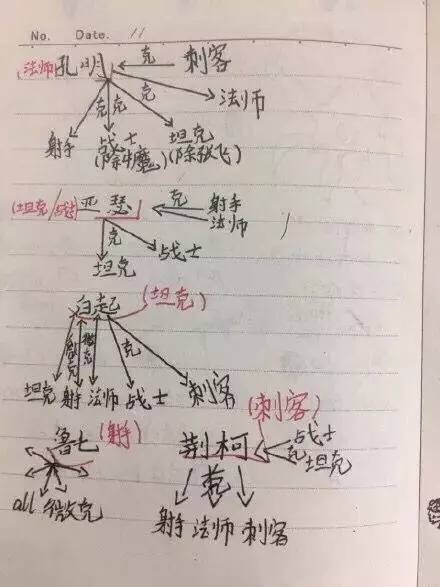 No. Date. 11
法师 孔明 克 刺客
克 克 克 法师
射手 战士 坦克
(除牛魔) (除张飞)
(坦克/战士) 亚瑟 克 射手
法师
克
坦克 战士
白起 (坦克)
微克 克
坦克 射 法师 战士 刺客
鲁七 (射) 荆柯 (刺客) 战士
克 坦克
克
all 微克
射手 法师 刺客